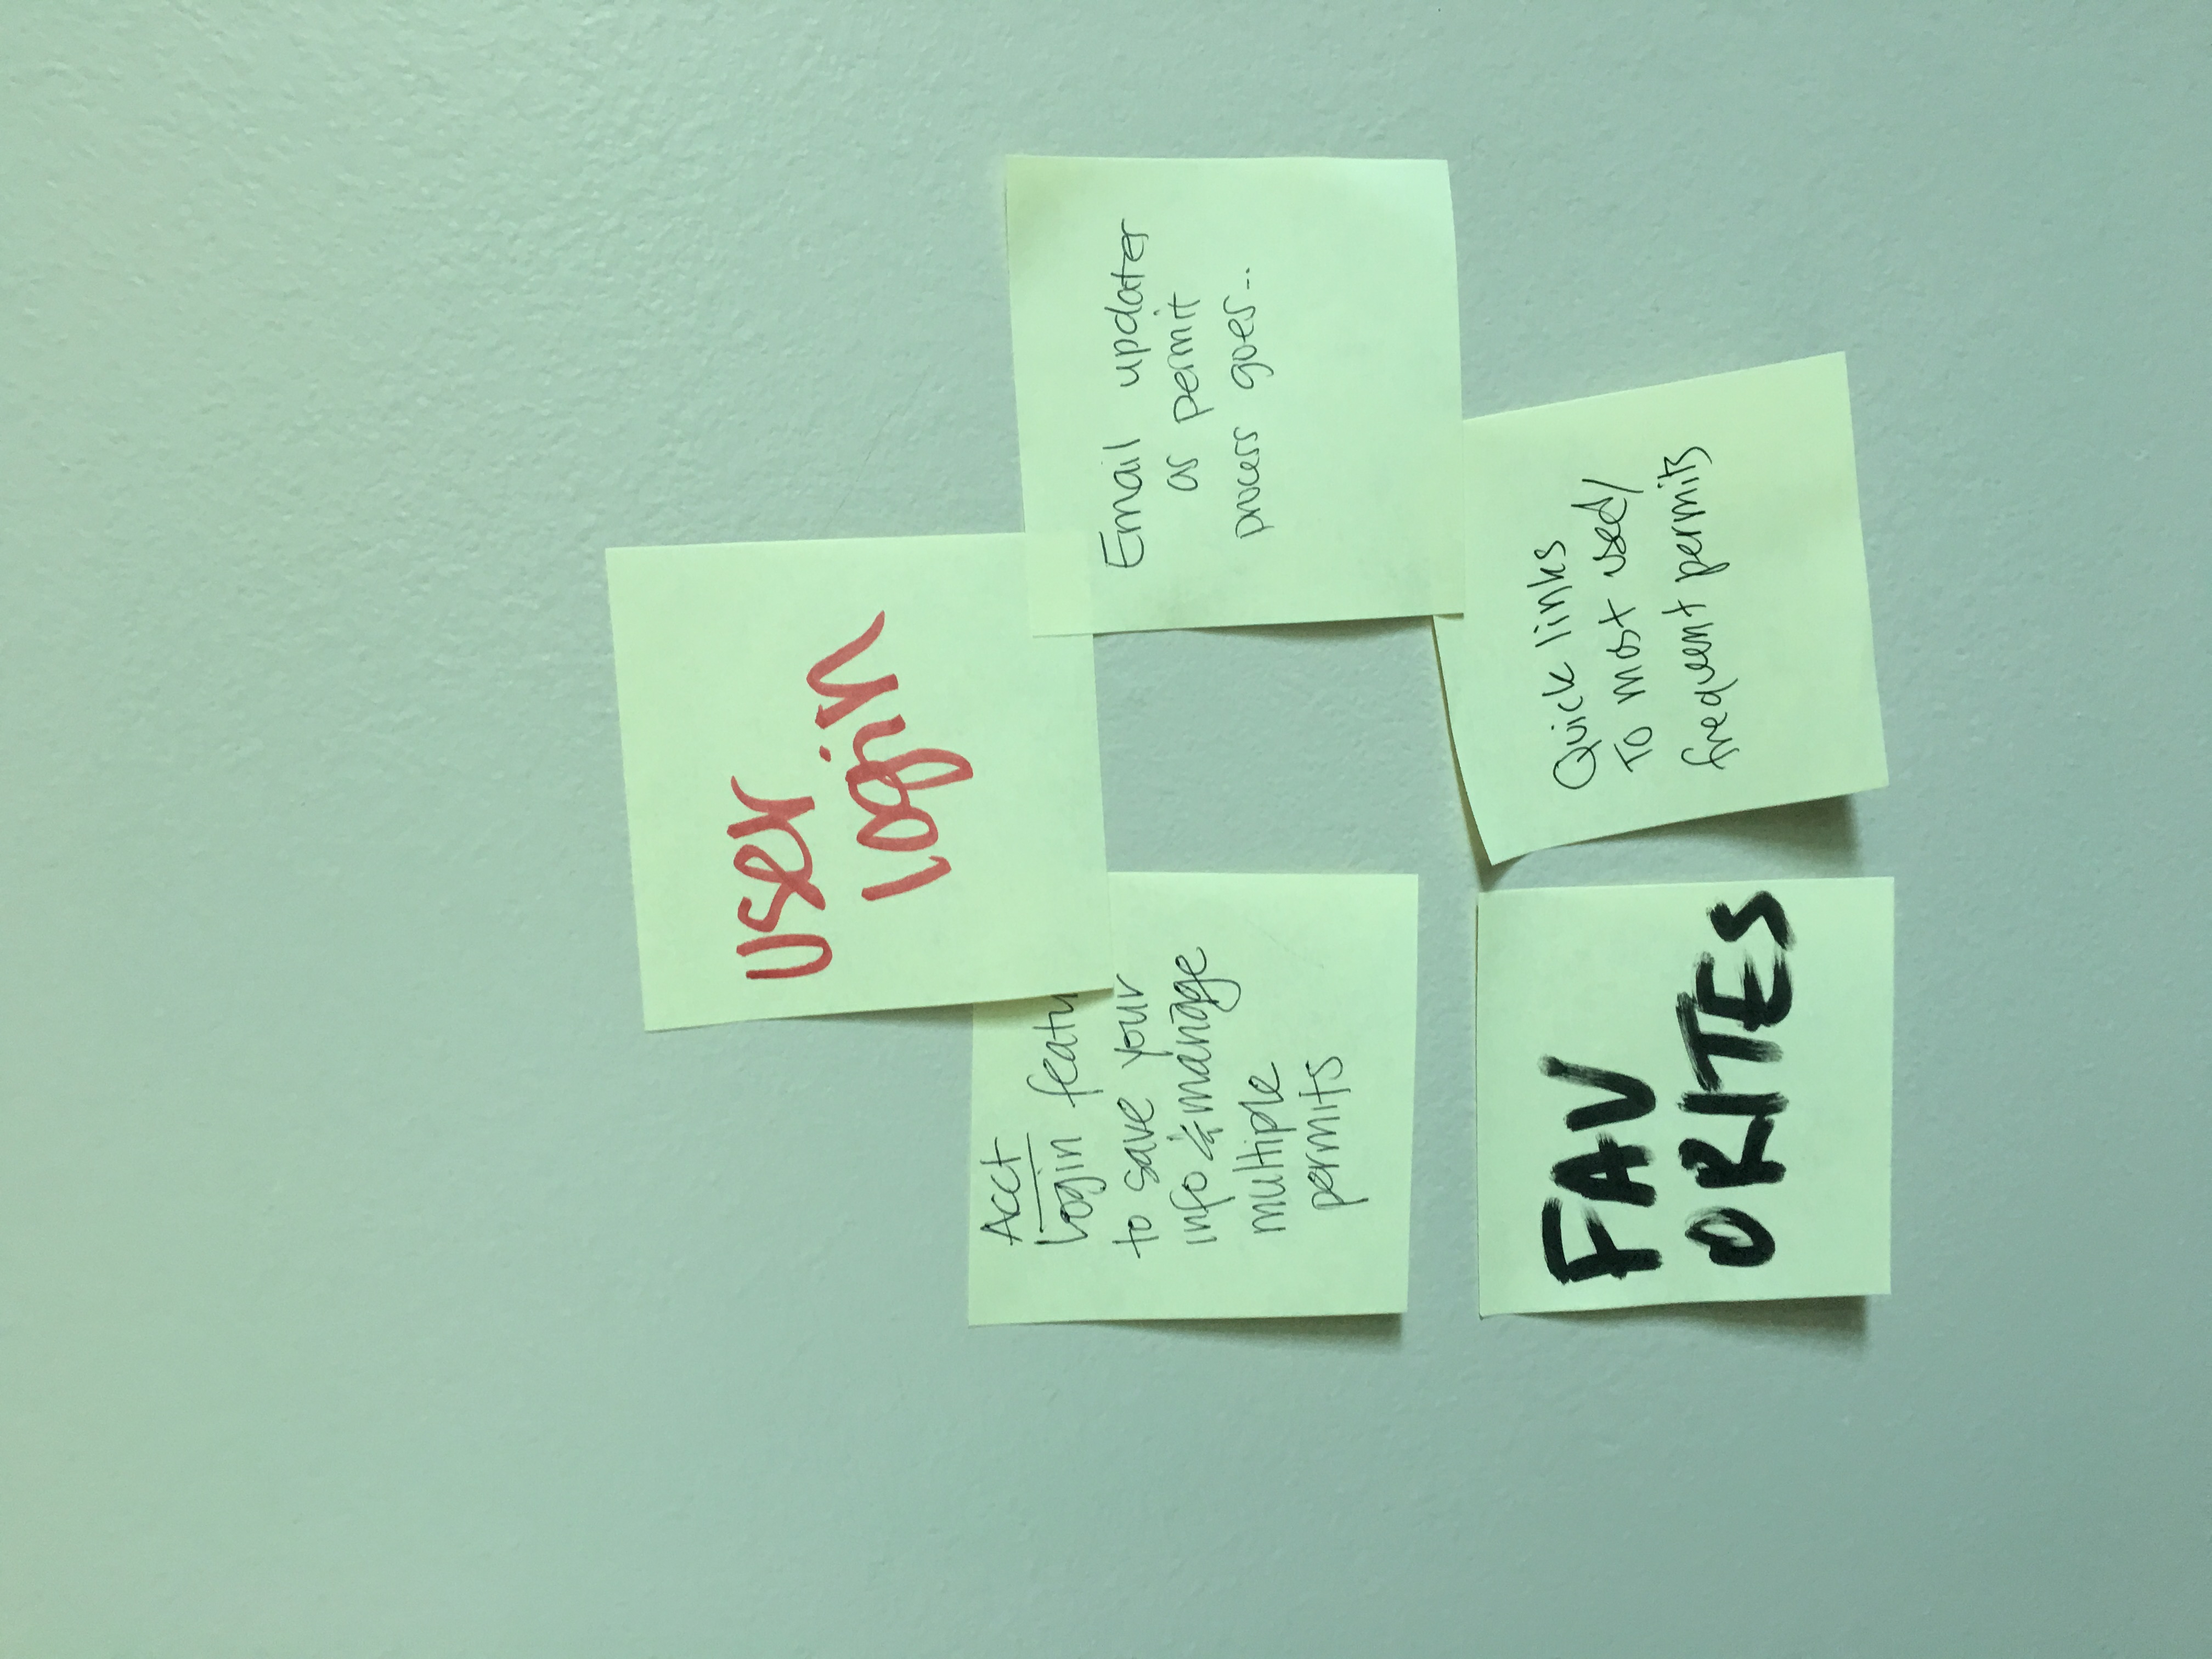 user
login
Acct
Login featu
to save your
info & manage
multiple
permits
Email updates
as permit
process goes...
FAV
ORITES
Quick links
To most used/
frequent permits